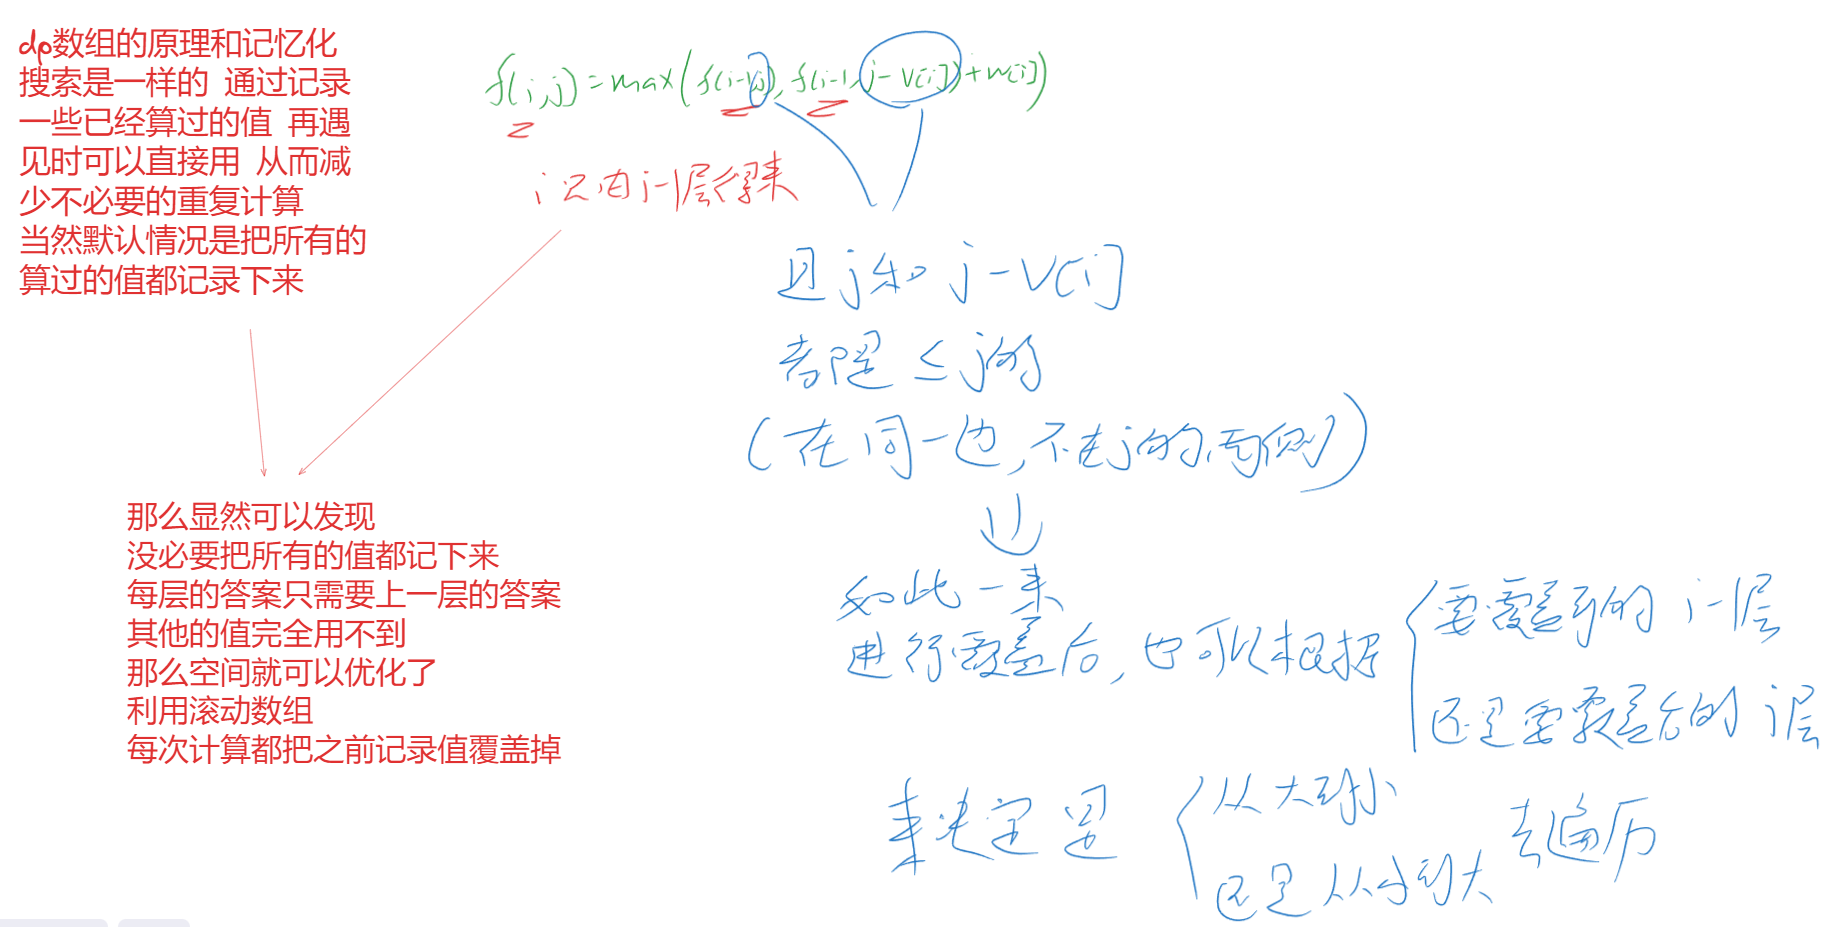 dp数组的原理和记忆化
搜索是一样的 通过记录
一些已经算过的值 再遇
见时可以直接用 从而减
少不必要的重复计算
当然默认情况是把所有的
算过的值都记录下来
f(i,j)=max(f(i-1,j),f(i-1,j-v[i])+w[i])
i只由i-1层得来
且j和j-v[i]
都是≤j的
(在同一边,不在j的两侧)
那么显然可以发现
没必要把所有的值都记下来
每层的答案只需要上一层的答案
其他的值完全用不到
那么空间就可以优化了
利用滚动数组
每次计算都把之前记录值覆盖掉
如此一来
进行覆盖后,也可以根据
要覆盖前的i-1层
还是要覆盖后的i层
来决定是
从大到小
还是从小到大
去遍历